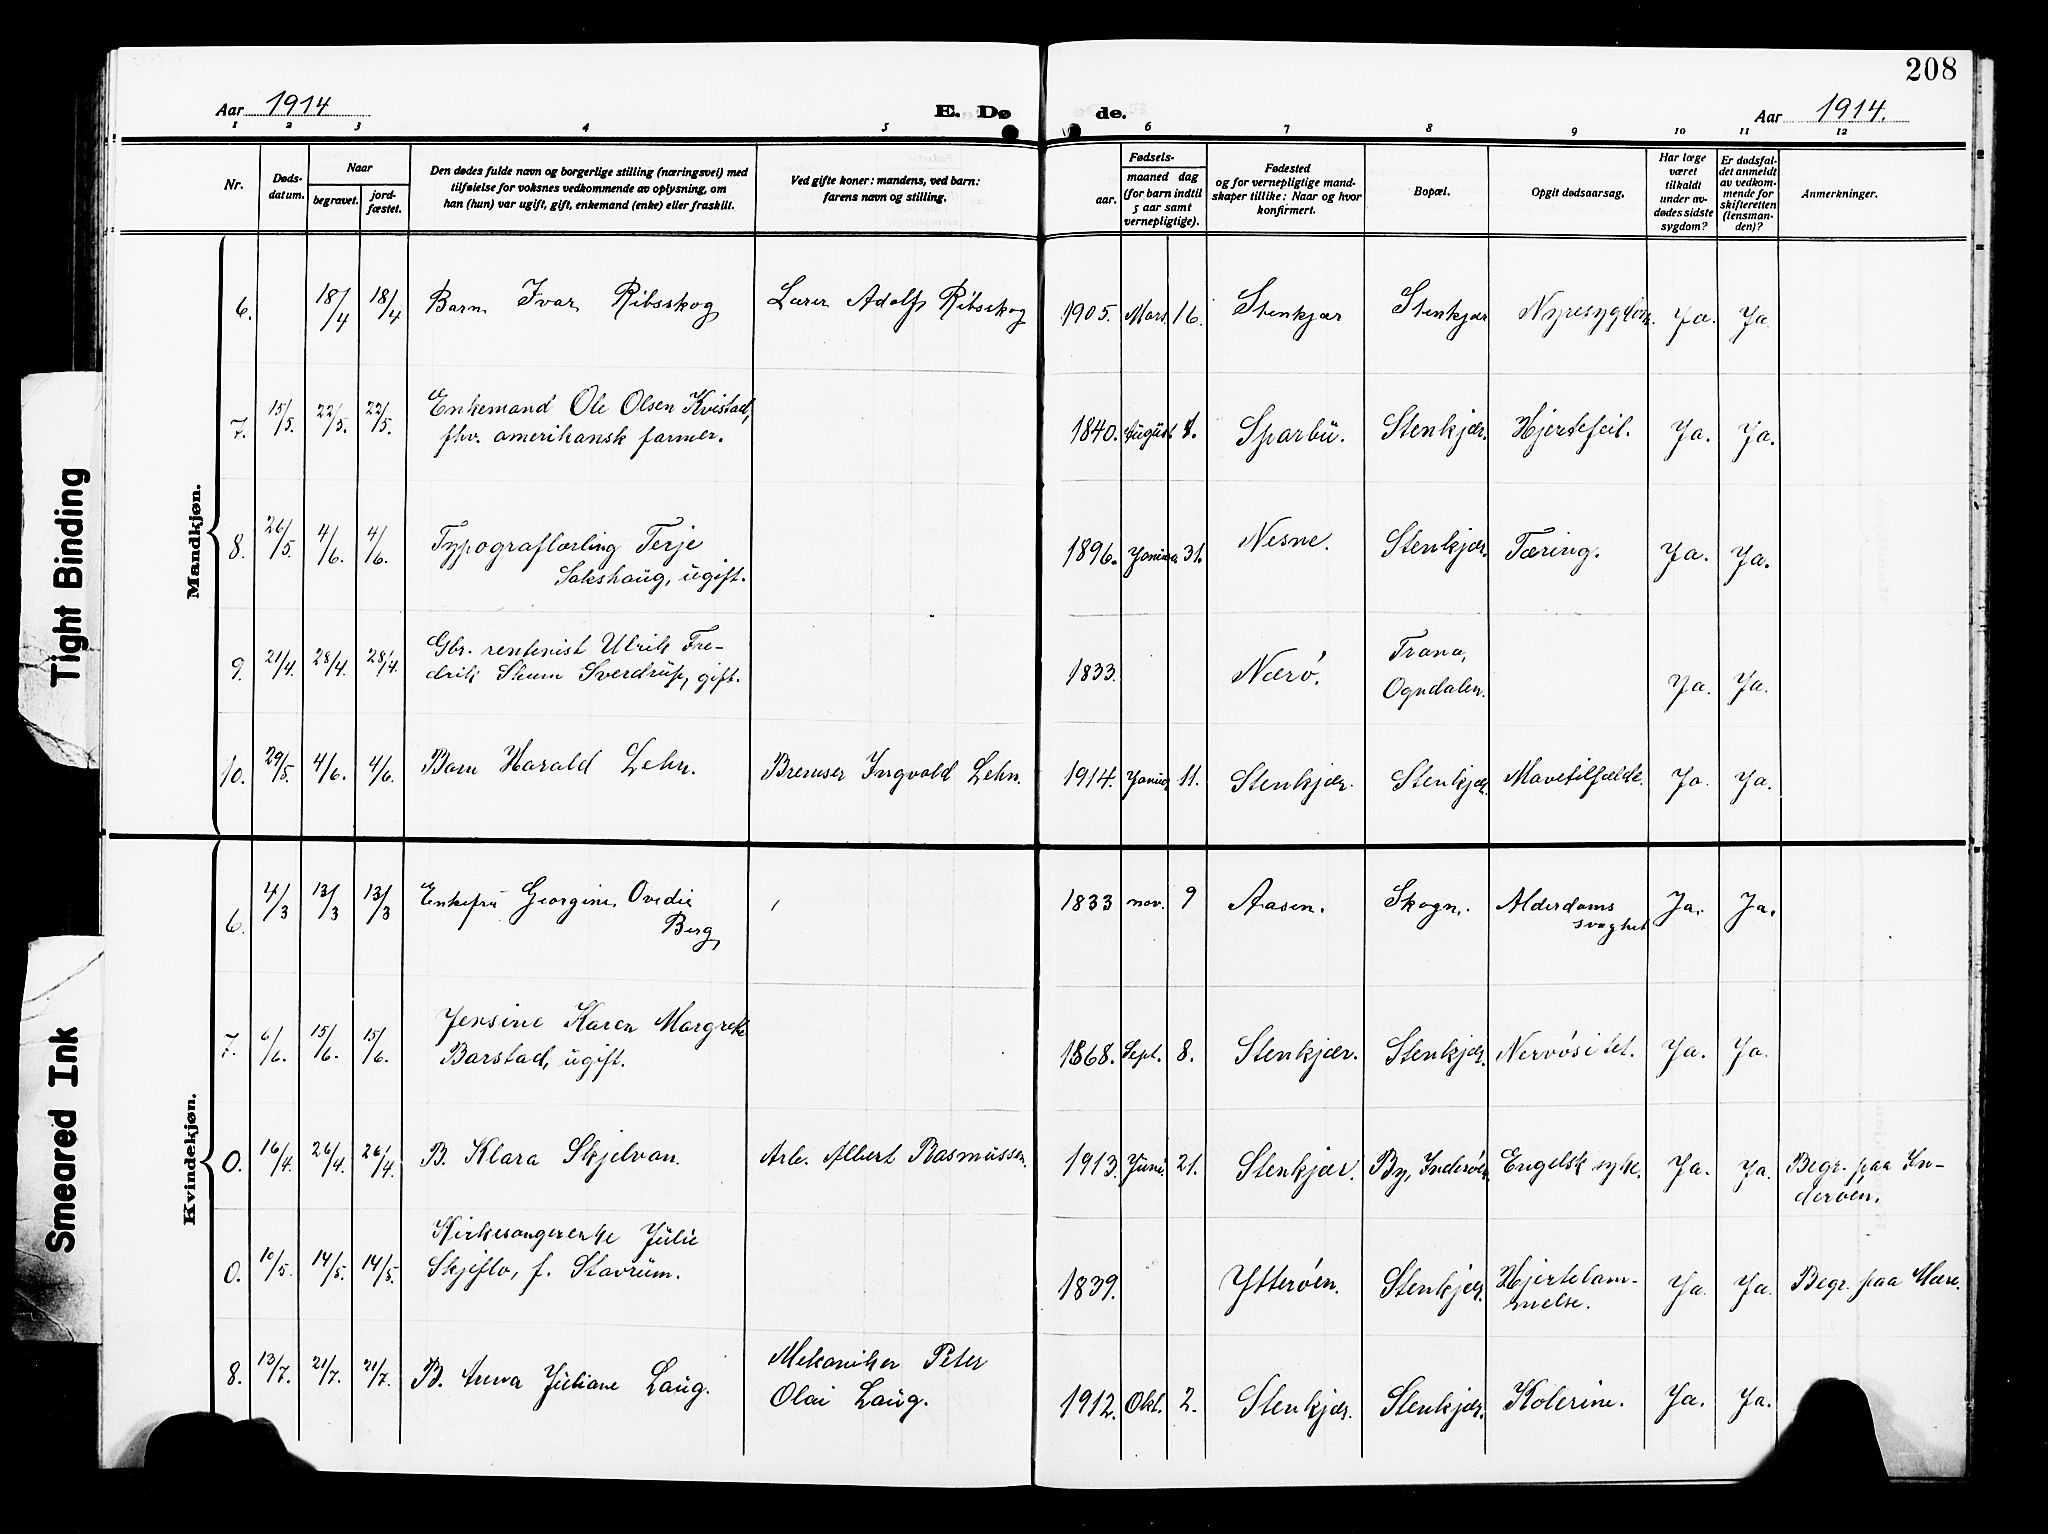 208
Aar 1914
E. Dø
de.
Aar 1914.
1 2 3 4 5 6 7 8 9 10 11 12
Nr.
Døds-
datum.
Naar
begravet.
jord-
fæstet.
Den dødes fulde navn og borgerlige stilling (næringsvei) med
tilføielse for voksnes vedkommende av oplysning, om
han (hun) var ugift, gift, enkemand (enke) eller fraskilt.
Ved gifte koner: mandens, ved barn:
farens navn og stilling.
Fødsels-
aar.
maaned dag
(for barn indtil
5 aar samt
vernepligtige).
Fødested
og for vernepligtige mand-
skaper tillike: Naar og hvor
konfirmert.
Bopæl.
Opgit dødsaarsag.
Har læge
været
tilkaldt
under av-
dødes sidste
sygdom?
Er dødsfal-
det anmeldt
av vedkom-
mende for
skifteretten
(lensman-
den)?
Anmerkninger.
Mandkjøn.
6. 18/4 18/4 Barn Ivar Ribsskog Lærer Adolf Ribsskog 1905. Mars 16. Stenkjær Stenkjær Nyresygdom. Ja. Ja.
7. 15/5. 22/5. 22/5. Enkemand Ole Olsen Kvistad,
fhv. amerikansk farmer. 1840. August 4. Sparbu. Stenkjær. Hjertefeil. Ja. Ja.
8. 26/5. 4/6. 4/6. Typograflærling Terje
Sakshaug, ugift. 1896. Januar 31. Nesne. Stenkjær. Tæring. Ja. Ja.
9. 21/4. 28/4. 28/4. Gbr. rentenist Ulrik Fre-
drik Skum Sverdrup, gift. 1833. Nærö. Trana,
Ogndalen. Ja. Ja.
10. 29/5. 4/6. 4/6. Barn Harald Lehn. Bremser Ingvald Lehn. 1914. Januar 11. Stenkjær. Stenkjær. Mavetilfælde. Ja. Ja.
Kvindekjøn.
6. 4/3 13/3 13/3 Enkefru Georgine Ovedie
Berg 1833 nov. 9 Aasen. Skogn. Alderdoms
svaghet Ja. Ja.
7. 6/6. 15/6. 15/6. Jensine Karen Margrete
Barstad, ugift. 1868. Sept. 8. Stenkjær. Stenkjær. Nervösitet. Ja. Ja.
0. 16/4. 26/4. 26/4. B. Klara Skjelvan. Arb. Albert Rasmussen. 1913. Juni 21. Stenkjær. By, Inderöen. Engelsk syke. Ja. Ja. Begr. paa In-
deröen.
0. 10/5. 14/5. 14/5. Kirkesangerenke Julie
Skjeflo, f. Stavrum. 1839. Ytteröen. Stenkjær. Hjertelam-
melse. Ja. Ja. Begr. paa Mære.
8. 13/7. 21/7. 21/7. B. Anna Juliane Laug. Mekaniker Peter
Olai Laug. 1912. Okt. 2. Stenkjær. Stenkjær. Kolerine. Ja. Ja.
Tight Binding
Smeared Ink